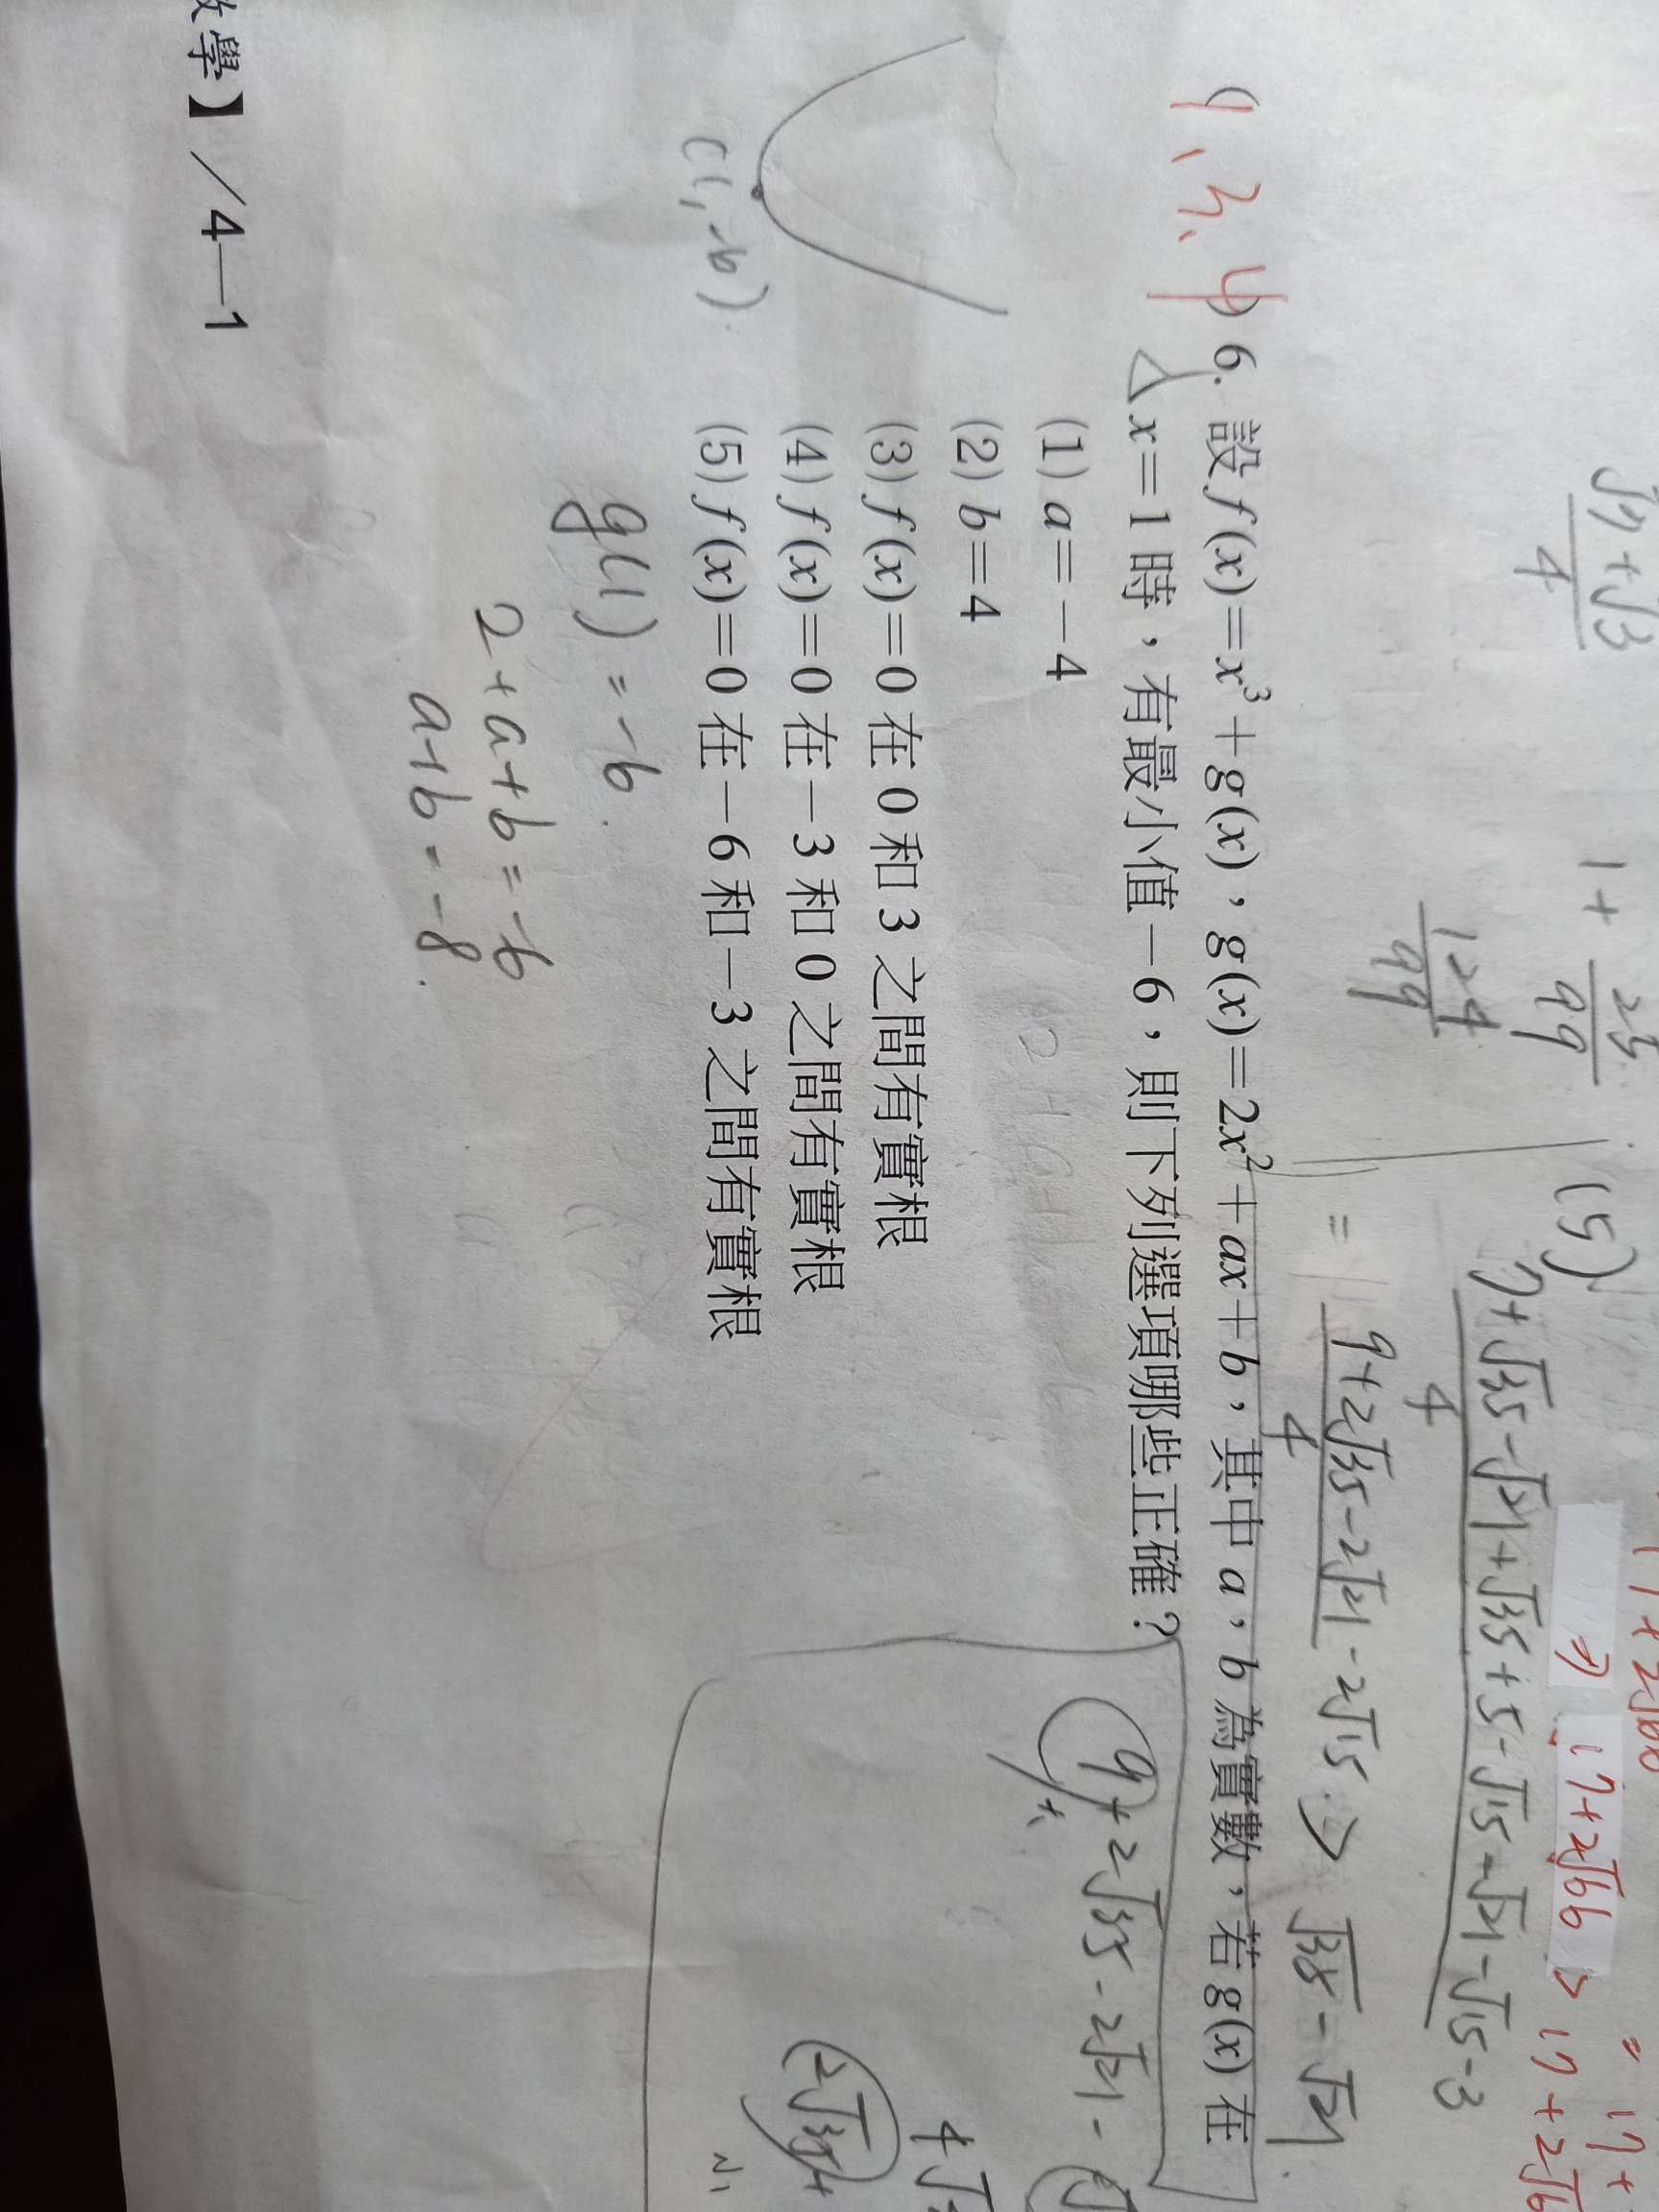 √7+√3
4
1+ 25/99
124/99
(5)
7+√35-√21+√35+5-√15-√21-√15-3
4
= 9+2√35-2√21-2√15 > √35-√21
4
⇒ 17+2√66 > 17+2√6
= 17+
1、3、4
( ) 6. 設 f(x)=x³+g(x)，g(x)=2x²+ax+b，其中 a，b 為實數，若 g(x) 在
x=1 時，有最小值-6，則下列選項哪些正確？
(1) a=-4
(2) b=4
(3) f(x)=0 在 0 和 3 之間有實根
(4) f(x)=0 在-3 和 0 之間有實根
(5) f(x)=0 在-6 和-3 之間有實根
(1,-6)
g(1)=-6.
2+a+b=-6
a+b=-8.
9+2√35-2√21-
4√
2√35+
學】/4—1